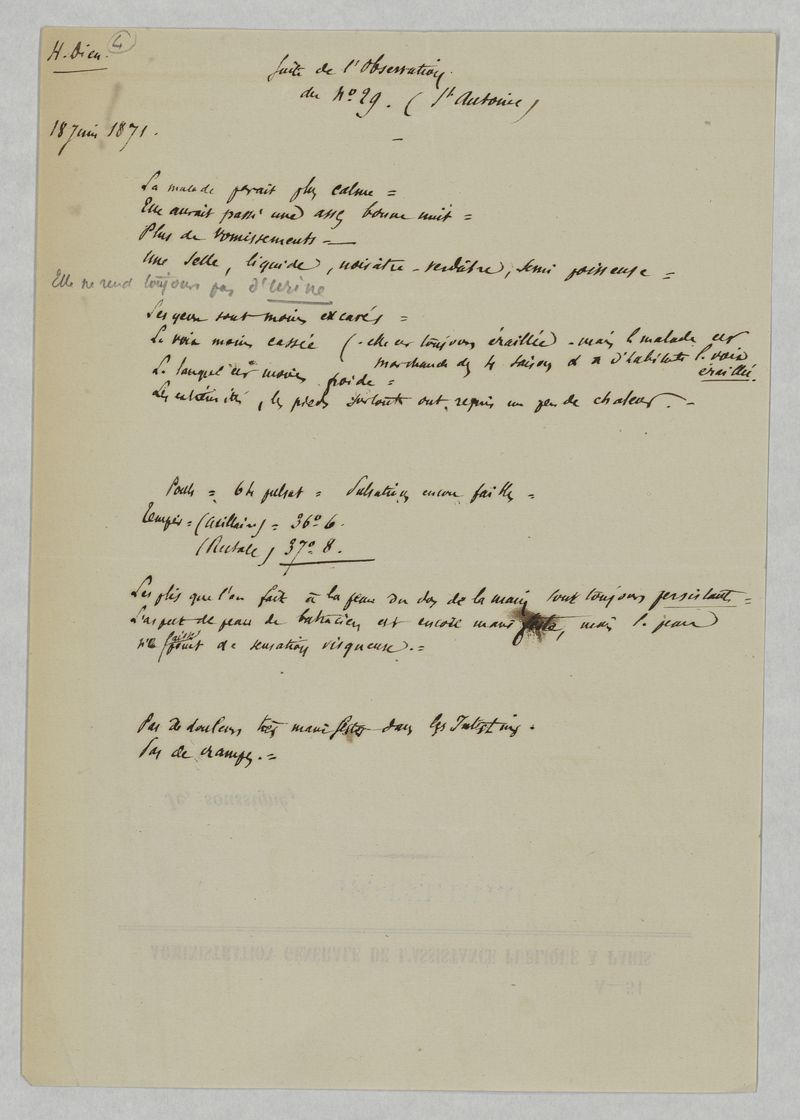 H. Dieu. 4
Suite de l'Observation
du No 29. (St Antoine)
18 Juin 1871.
La malade serait plus calme =
Elle aurait passé une assez bonne nuit =
Plus de Vomissements =
Une Selle, liquide, noirâtre - verdâtre, semi poisseuse =
Elle ne rend toujours pas d'urine
Les yeux sont moins excavés =
La voix moins cassée (- elle est toujours éraillée - mais la malade est
marchande des 4 saisons et a d'habitude la voix
éraillée.
La langue est moins froide =
Les extrémités, les pieds surtout ont repris un peu de chaleur. -
Pouls = 64 pulsat = Pulsations encore faibles =
Temp = (Axillaire) = 36° 6.
(Rectale) 37° 8.
Les plis que l'on fait à la peau du dos de la main sont toujours persistants =
L'aspect de peau de batracien est encore manifeste, mais la peau
n'a laisse point de sensation visqueuse. =
Pas de douleurs très manifestes dans les Intestins.
Pas de crampes. =
Je, soussigné,
ADMINISTRATION GÉNÉRALE DE L'ASSISTANCE PUBLIQUE A PARIS